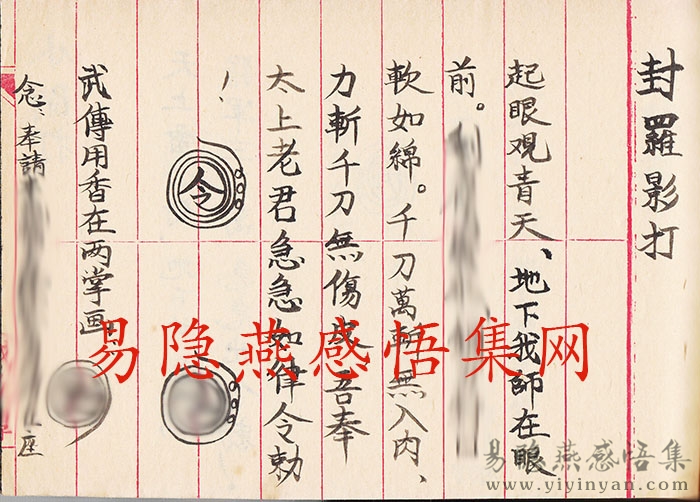 封羅影打
起眼观青天、地下我師在眼
前。
軟如綿。千刀萬斬無入内、
力斬千刀無傷皮吾奉
太上老君急急如律令勅
令
武傳用香在两掌画
念、奉請
座
易隐燕感悟集网
易隐燕感悟集
www.yiyinyan.com